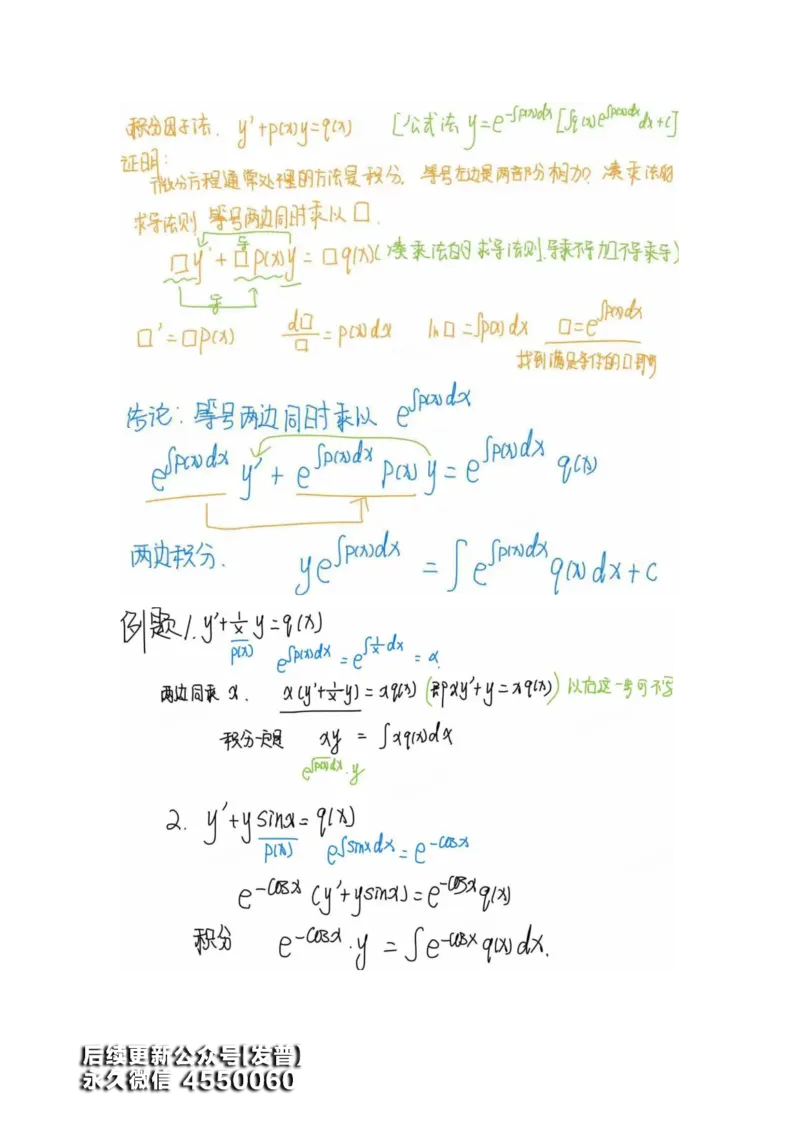 积分因子法. y'+p(x)y=q(x) [公式法 y=e^{-∫p(x)dx}[∫q(x)e^{∫p(x)dx}dx+c]
证明:
微分方程通常处理的方法是积分. 等号左边是两部分相加? 凑乘法的
求导法则 等号两边同时乘以□.
导
□y'+□p(x)y=□q(x)(凑乘法的求导法则.导乘不导加不导乘导)
导
□'=□p(x) d□/□=p(x)dx ln□=∫p(x)dx □=e^{∫p(x)dx}
找到满足条件的□即可
结论: 等号两边同时乘以 e^{∫p(x)dx}
e^{∫p(x)dx} y'+e^{∫p(x)dx} p(x)y=e^{∫p(x)dx} q(x)
两边积分. ye^{∫p(x)dx} = ∫e^{∫p(x)dx} q(x)dx+c
例题1. y'+1/x y=q(x)
p(x) e^{∫p(x)dx}=e^{∫1/x dx}=x.
两边同乘x. x(y'+1/x y)=xq(x) (即xy'+y=xq(x)) 以后这一步可不写
积分一定是 xy = ∫xq(x)dx
e^{∫p(x)dx}·y
2. y'+ysinx=q(x)
p(x) e^{∫sinxdx}=e^{-cosx}
e^{-cosx}(y'+ysinx)=e^{-cosx}q(x)
积分 e^{-cosx}·y = ∫e^{-cosx}q(x)dx.
后续更新公众号[发普]
永久微信 4550060